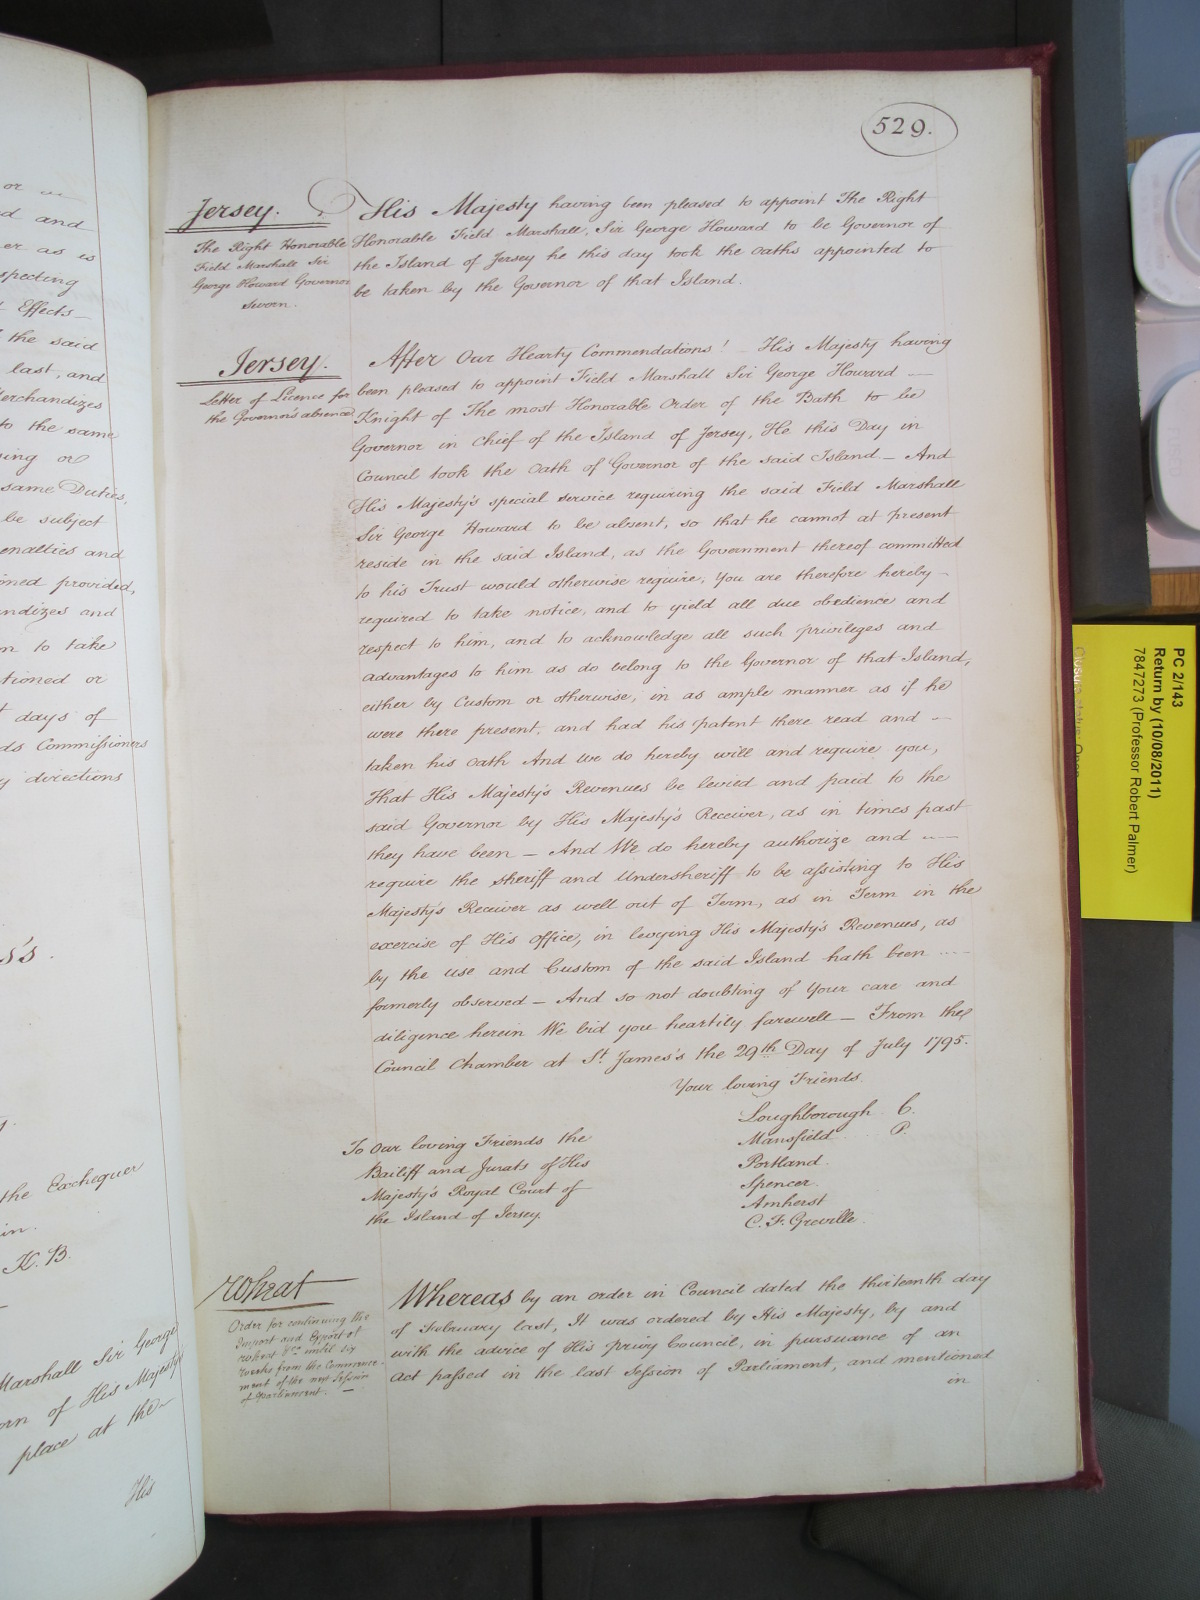 529.
Jersey.
The Right Honorable
Field Marshall Sir
George Howard Governor
Sworn.
His Majesty having been pleased to appoint The Right
Honorable Field Marshall, Sir George Howard to be Governor of
the Island of Jersey he this day took the Oaths appointed to
be taken by the Governor of that Island.
Jersey.
Letter of Licence for
the Governor's absence
After Our Hearty Commendations! - His Majesty having
been pleased to appoint Field Marshall Sir George Howard —
Knight of The most Honorable Order of the Bath to be
Governor in Chief of the Island of Jersey, He this Day in
Council took the Oath of Governor of the said Island — And
His Majesty's special service requiring the said Field Marshall
Sir George Howard to be absent, so that he cannot at present
reside in the said Island, as the Government thereof committed
to his Trust would otherwise require, You are therefore hereby —
required to take notice, and to yield all due obedience and
respect to him, and to acknowledge all such privileges and
advantages to him as do belong to the Governor of that Island,
either by Custom or otherwise, in as ample manner as if he
were there present, and had his patent there read and —
taken his Oath And we do hereby will and require you,
That His Majesty's Revenues be levied and paid to the
said Governor by His Majesty's Receiver, as in times past
they have been — And We do hereby authorize and —
require the Sheriff and Undersheriff to be assisting to His
Majesty's Receiver as well out of Term, as in Term in the
exercise of His office, in levying His Majesty's Revenues, as
by the use and Custom of the said Island hath been —
formerly observed — And so not doubting of Your care and
diligence herein We bid you heartily farewell — From the
Council Chamber at St. James's the 29th Day of July 1795.
Your loving Friends.
Loughborough C.
Mansfield P.
Portland.
Spencer.
Amherst
C. F. Greville.
To Our loving Friends the
Bailiff and Jurats of His
Majesty's Royal Court of
the Island of Jersey.
Wheat
Order for continuing the
Import and Export of
Wheat &c. until six
Weeks from the Commence-
ment of the next Session
of Parliament. —
Whereas by an order in Council dated the thirteenth day
of February last, It was ordered by His Majesty, by and
with the advice of His privy Council, in pursuance of an
Act passed in the last Session of Parliament, and mentioned
in
d and
er as is
specting
Effects —
the said
last, and
erchandizes
to the same
ing or
same Duties,
be subject
enalties and
oned provided,
ndizes and
to take
tioned or
days of
ds Commissioners
y directions
the Exchequer
K. B.
Marshall Sir George
of His Majesty's
place at the
His
PC 2/143
Return by (10/08/2011)
7847273 (Professor Robert Palmer)
Closure status: Open